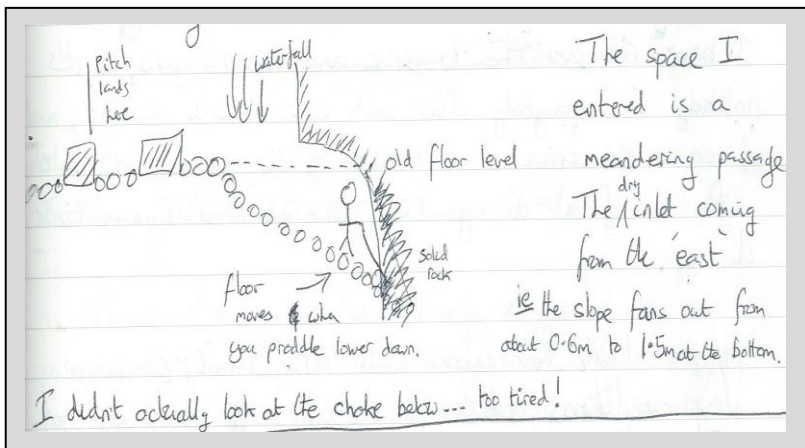 Pitch
lands
here
waterfall
old floor level
solid
rock
floor
moves when
you proddle lower down.
The space I
entered is a
meandering passage
The dry inlet coming
from the 'east'
ie the slope fans out from
about 0.6m to 1.5m at the bottom.
I didn't actually look at the choke below... too tired!